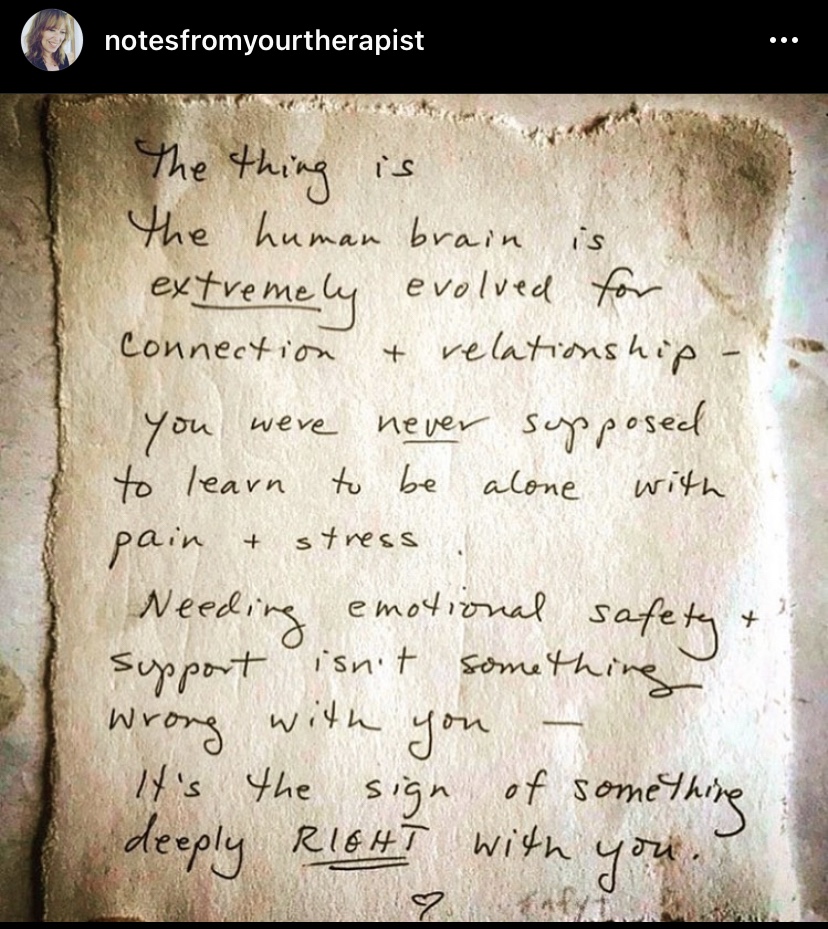 notesfromyourtherapist
The thing is
the human brain is
extremely evolved for
connection + relationship -
you were never supposed
to learn to be alone with
pain + stress.
Needing emotional safety +
support isn't something
wrong with you —
It's the sign of something
deeply RIGHT with you.